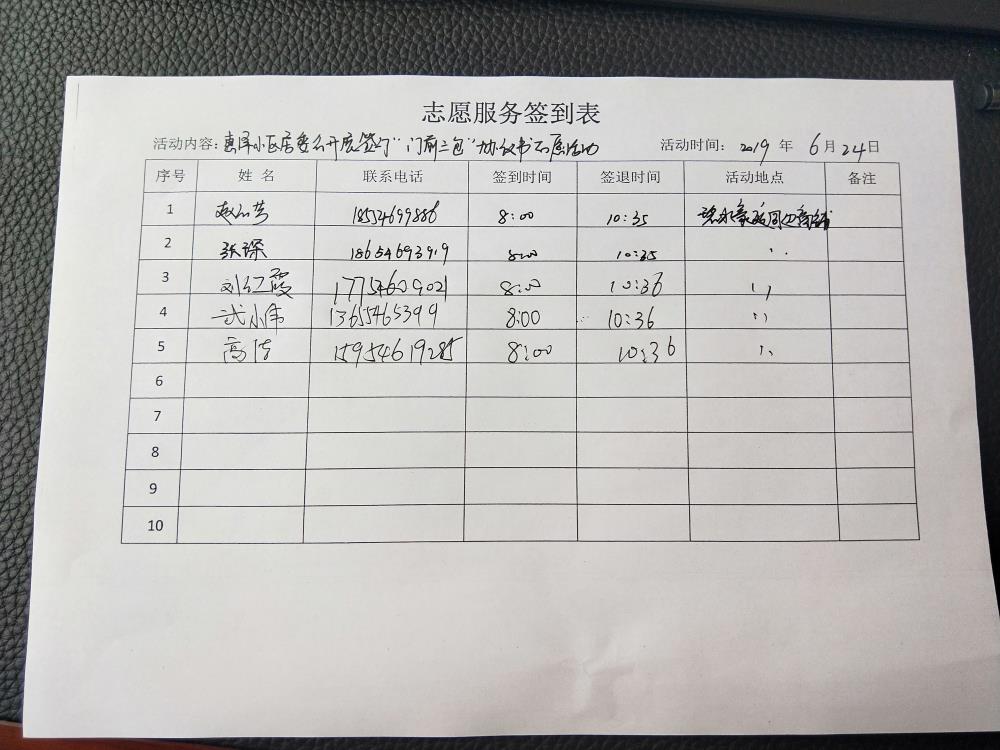 志愿服务签到表
活动内容：惠泽小区居委会开展签订“门前三包”协议书 活动 活动时间：2019年6月24日
序号 姓名 联系电话 签到时间 签退时间 活动地点 备注
1 赵 18554699886 8:00 10:35 家园周边商铺
2 张琛 18654693919 8:00 10:35 〃
3 刘红霞 17754609021 8:00 10:36 〃
4 武小伟 13655465399 8:00 10:36 〃
5 高洁 15954619285 8:00 10:36 〃
6
7
8
9
10